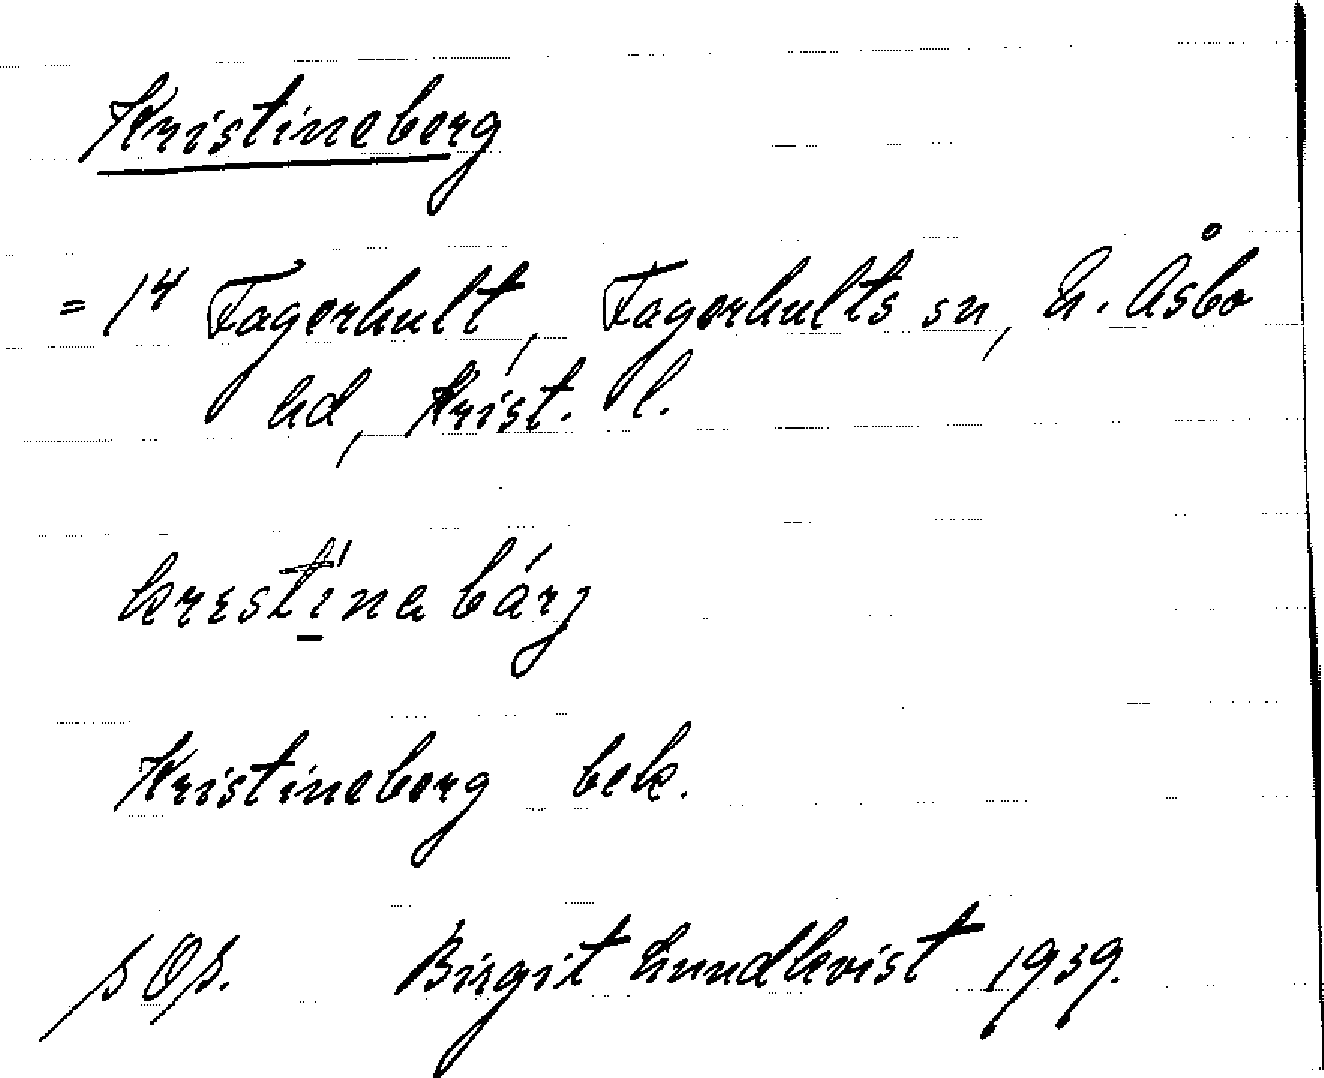 Kristineberg
= 14 Fagerhult, Fagerhults sn, N. Åsbo
hd, Krist. l.
Kristineberg bek.
Birgit Lundkvist 1939.